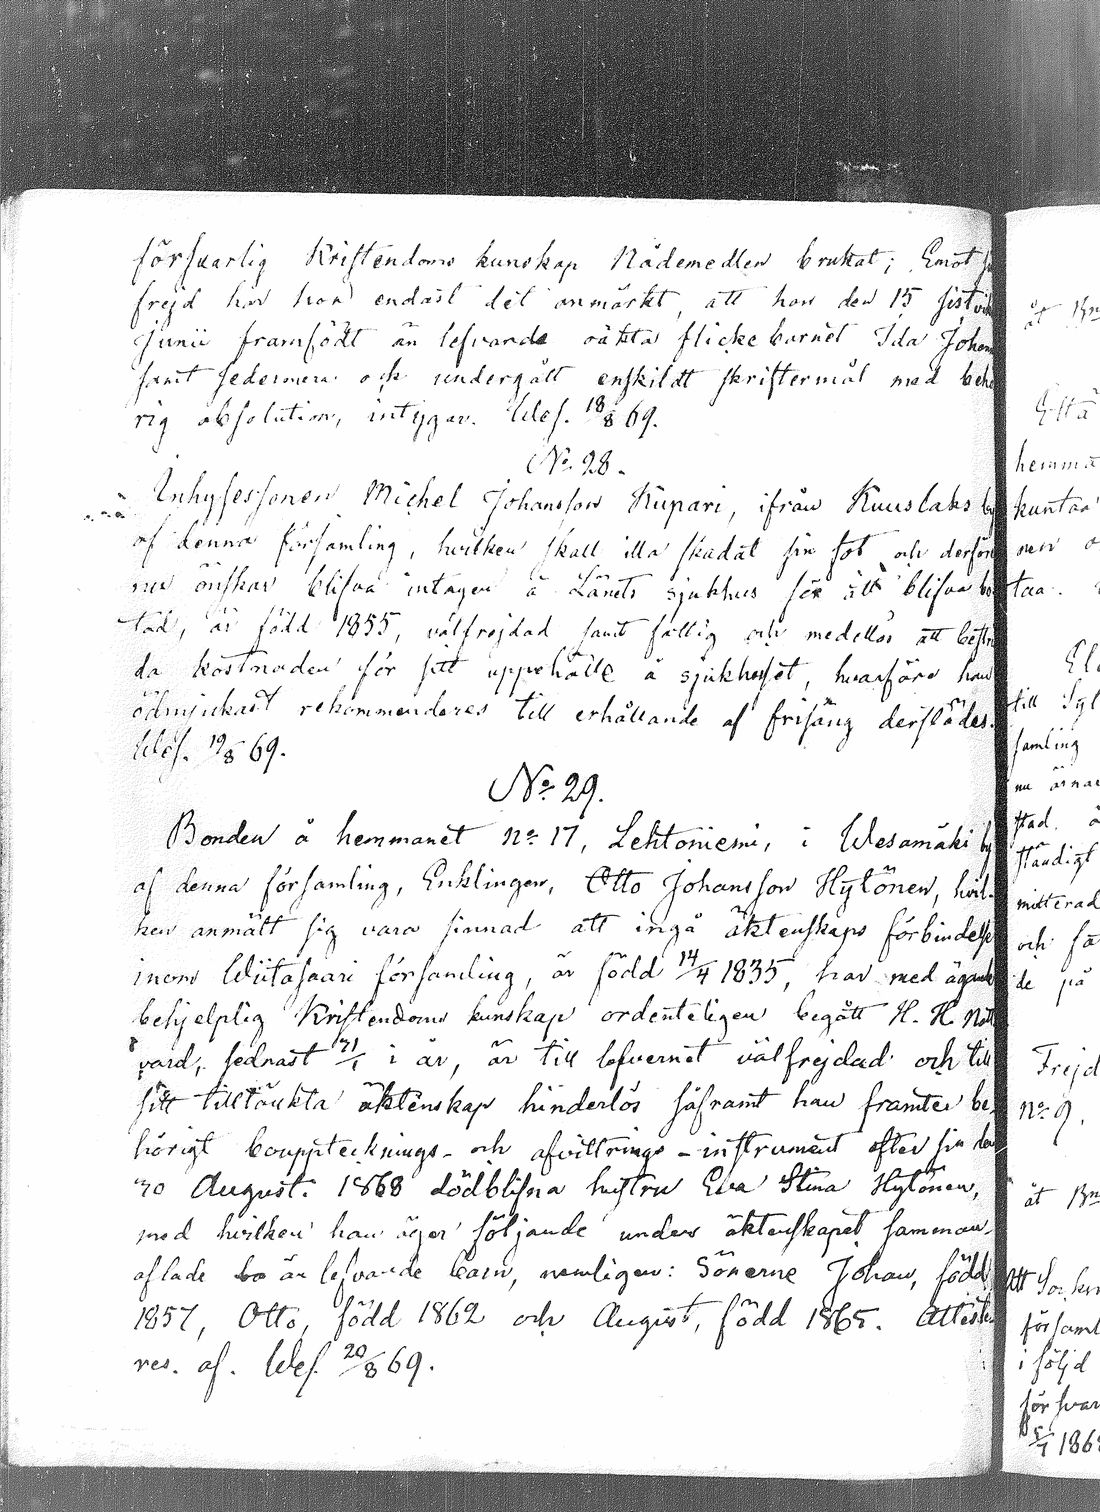 försvarlig Kristendoms kunskap Nådemedlen brukat; Emot
frejd har hon endast det anmärkt, att hon den 15 sistvik
Junii framfödt än lefvande oäkta flickebarnet Ida Johan
samt sedermera och undergått enskildt skriftermål med behö
rig absolution, intygar. Wes. 18/8 69.
No. 28.
Inhysessonen Michel Johansson Kupari, ifrån Kuuslaks by
af denna församling, hvilken skall illa skadat sin fot och derföre
nu önskar blifva intagen å Länets sjukhus för att blifva bo
tad, är född 1855, välfrejdad samt fattig och medellös att bestri
da kostnaden för sitt uppehälle å sjukhuset, hvarföre han
ödmjukast rekommenderes till erhållande af frisäng derstädes.
Wes. 19/8 69.
No. 29.
Bonden å hemmanet no 17, Lehtoniemi, i Wesamäki by
af denna församling, Enklingen, Otto Johansson Hytönen, hvil-
ken anmält sig vara sinnad att ingå äktenskaps förbindelse
inom Wiitasaari församling, är född 14/4 1835, har med
behjelplig Kristendoms kunskap ordenteligen begått H. H. Natt
vard, sednast i år, är till lefvernet välfrejdad och till
sitt tilltänkta äktenskap hinderlös såframt han framter be-
hörigt bouppteknings- och afvittrings-instrument efter sin den
30 August. 1868 dödblifna hustru Eva Stina Hytönen,
med hvilken han äger följande under äktenskapet samman-
aflade än lefvande barn, nemligen: Sönerne Johan, född
1857, Otto, född 1862 och August, född 1865. Atteste
res. af. Wes. 20/8 69.
åt
hemma
till
samling
stad.
mitterad
och
de på
Frejd
no 9.
åt
församl
i följd
försvar